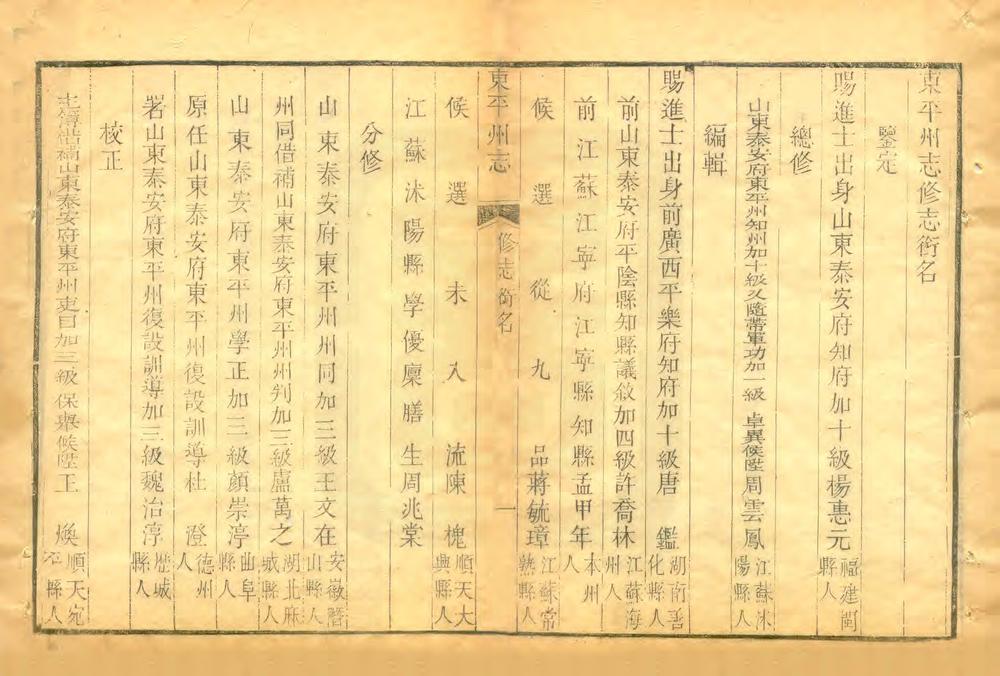 東平州志修志銜名
鑒定
賜進士出身山東泰安府知府加十級楊惠元福建閩縣人
總修
山東泰安府東平州知州加十級又隨帶軍功加一級卓異候陞周雲鳳江蘇沭陽縣人
編輯
賜進士出身前廣西平樂府知府加十級唐鑑湖南善化縣人
前山東泰安府平陰縣知縣議敘加四級許喬林江蘇海州人
前江蘇江寧府江寧縣知縣孟甲年本州人
候選從九品蔣毓璋江蘇常熟縣人
東平州志
修志銜名
一
候選未入流陳槐順天大興縣人
江蘇沭陽縣學優廩膳生周兆棠
分修
山東泰安府東平州州同加三級王文在安徽人
州同借補山東泰安府東平州州判加三級盧萬之湖北麻城縣人
山東泰安府東平州學正加三級顏崇㵾曲阜縣人
原任山東泰安府東平州復設訓導杜澄德州人
署山東泰安府東平州復設訓導加三級魏治淳歷城縣人
校正
補山東泰安府東平州吏目加三級保舉候陞王煥順天宛縣人